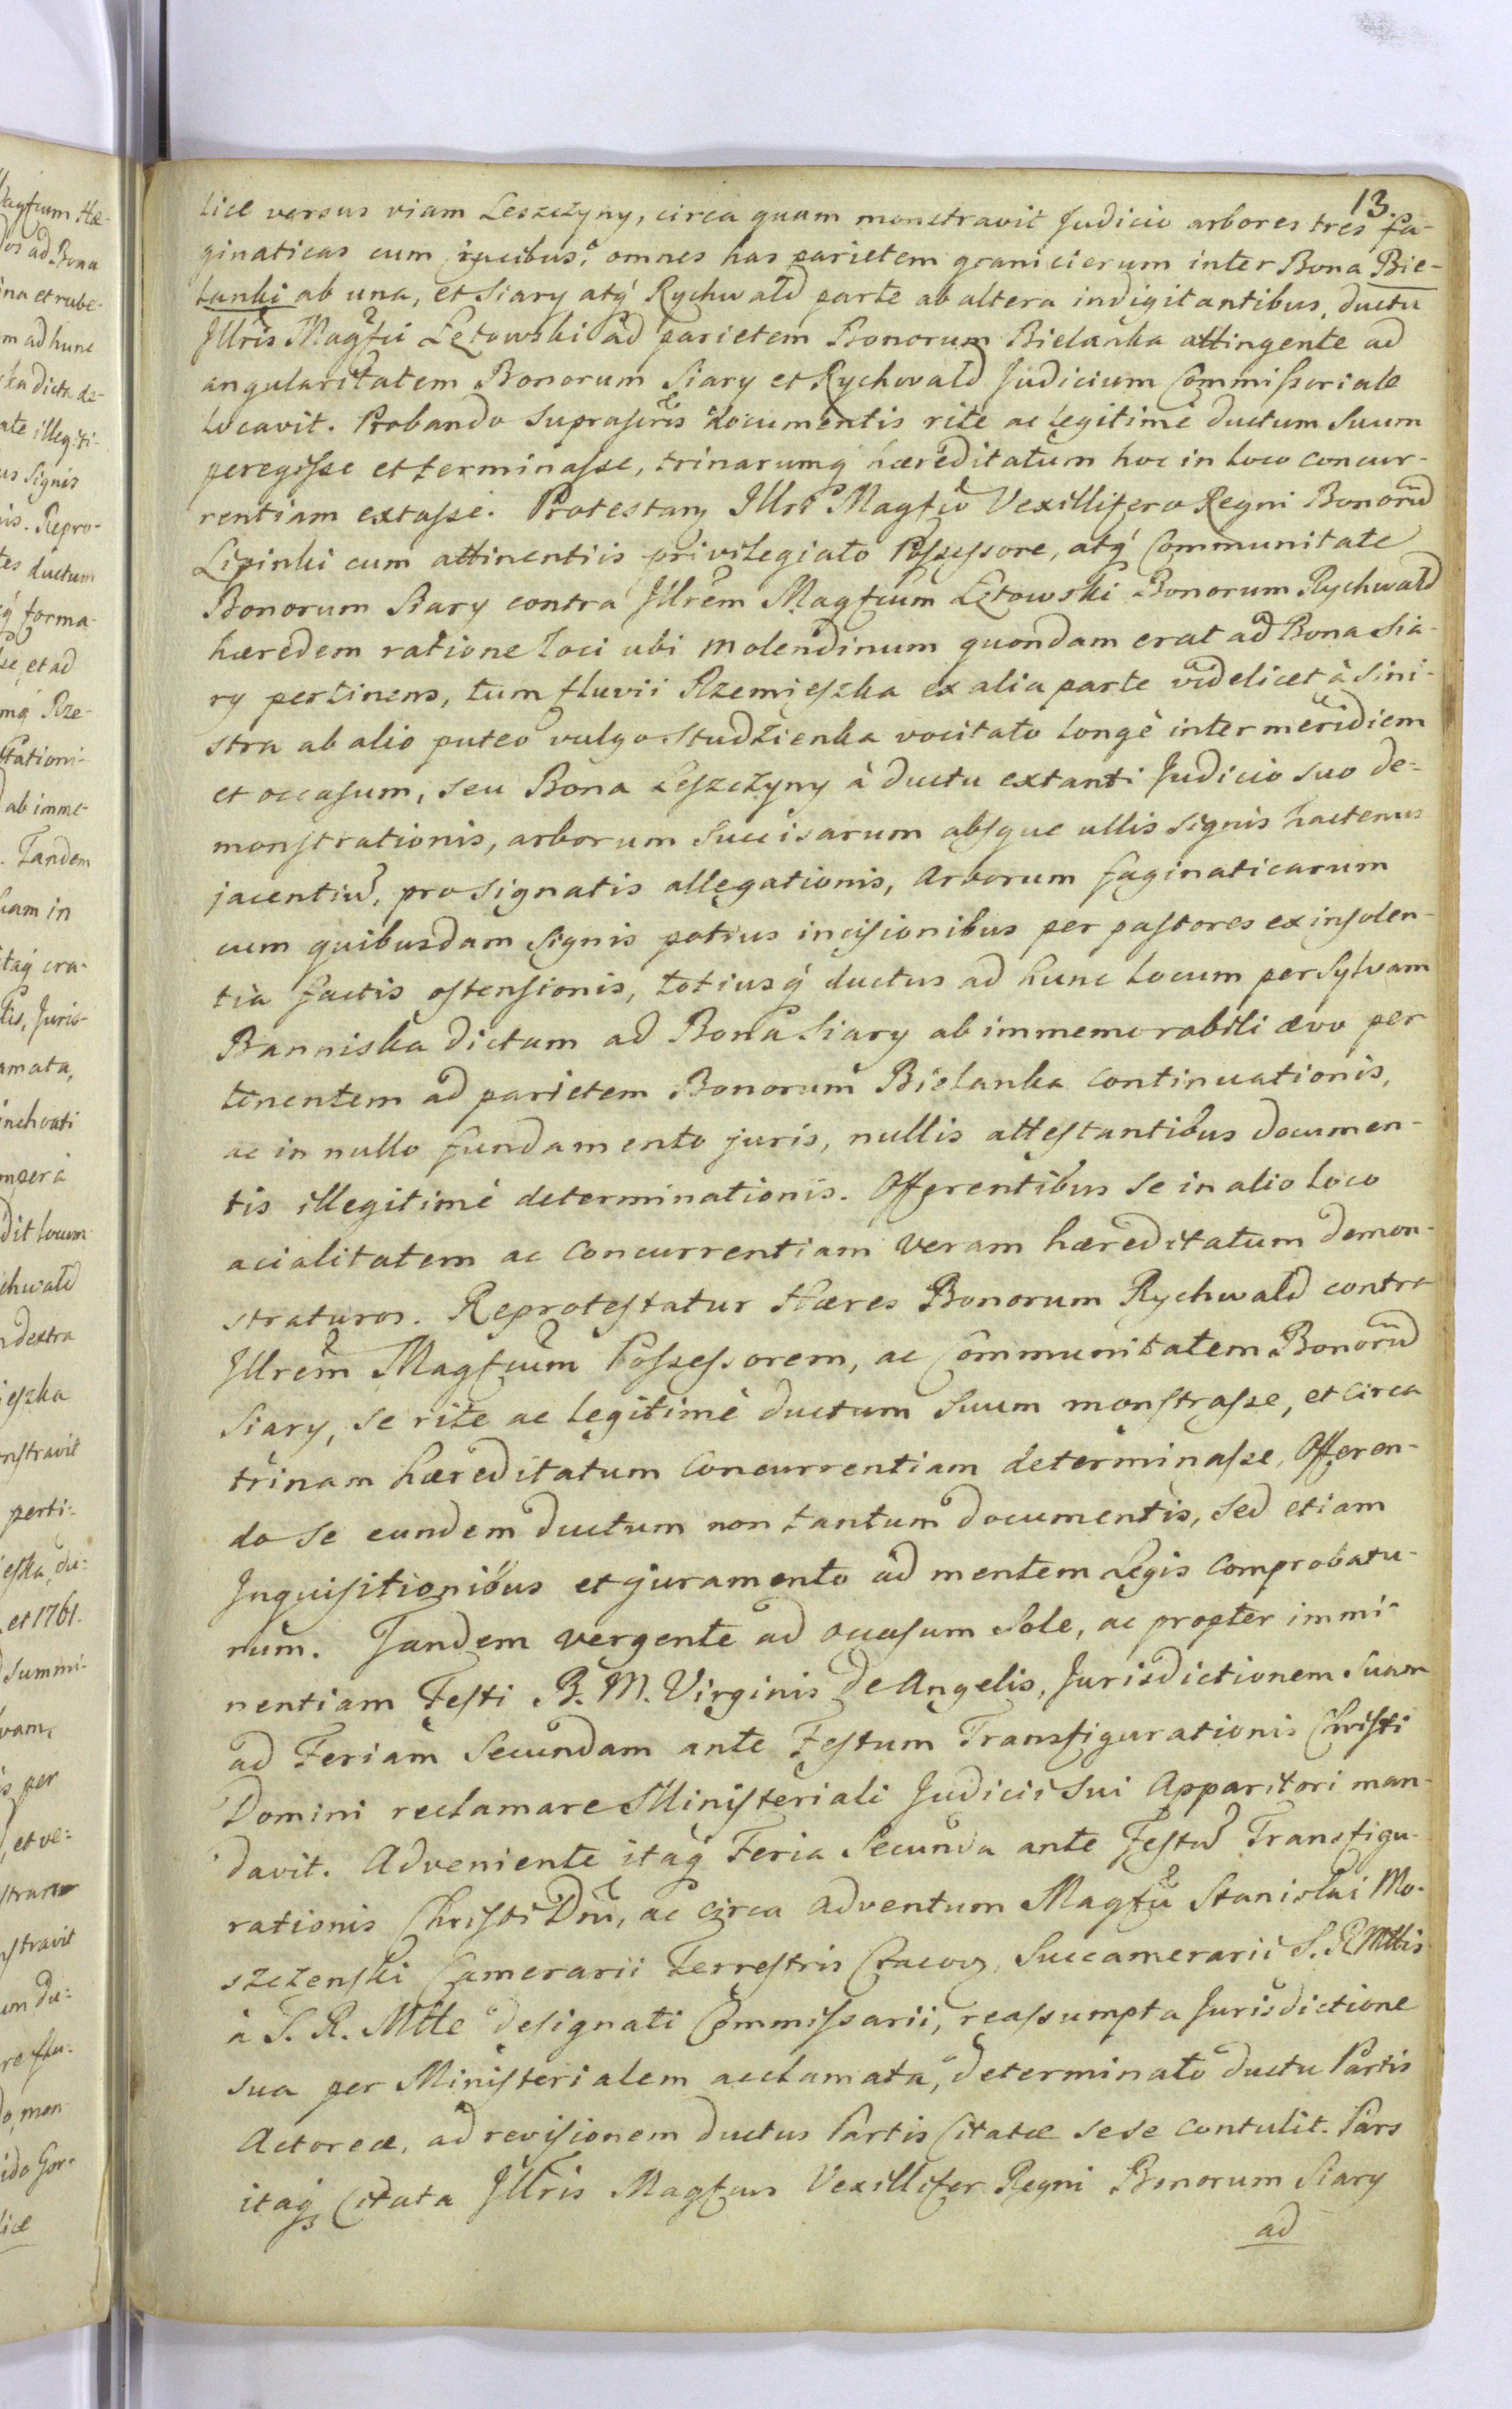 13.
licæ versus viam Leszczyny, circa quam monstravit Judicio arbores tres fa-
ginaticas cum crucibus, omnes has parietem granicierum inter Bona Bie-
lanki ab una, et Siary atq́ Rychwald parte ab altera indigitantibus, ductu
Jllris Magfci Lętowski ad parietem Bonorum Bielanka attingente ad
angularitatem Bonorum Siary et Rychwald Judicium Commissoriale
locavit. Probando suprascris documentis rite ac legitimè ductum suum
peregisse et terminasse, trinarumq́ hæreditatum hoc in loco concur-
rentiam extasse. Protestanz Jllri Magfco Vexillifero Regni Bonorũ
Lipinki cum attinentiis privilegiato Possessore, atq́ Communitate
Bonorum Siary contra Jllrem Magfcum Lętowski Bonorum Rychwald
hæredem ratione loci ubi molendinum quondam erat ad Bona Sia-
ry pertinens, tum fluvii Rzemieszka ex alia parte videlicet à sini-
stra ab alio puteo vulgo Studzienka vocitato longè inter meridiem
et occasum, seu Bona Leszczyny à ductu extanti Judicio suo de-
monstrationis, arborum succisarum absque ullis signis hactenus
jacentiũ, pro signatis allegationis, arborum faginaticarum
cum quibusdam signis potius incisionibus per pastores ex insolen-
tia factis ostensionis, totiusq́ ductus ad hunc locum per Sylvam
Banniska dictam ad Bona Siary ab immemorabili ævo per
tenentem ad parietem Bonorum Bielanka continuationis,
ac in nullo fundamento juris, nullis attestantibus documen-
tis illegitimè determinationis. Offerentibus se in alio loco
acialitatem ac concurrentiam veram hæreditatum demon-
straturos. Reprotestatur Hæres Bonorum Rychwald contra
Jllrem Magfcum Possessorem, ac Communitatem Bonorũ
Siary, se rite ac legitimè ductum suum monstrasse, et circa
trinam hæreditatum concurrentiam determinasse, Offeren-
do se eundem ductum non tantum documentis, sed etiam
Jnquisitionibus et juramento ad mentem Legis comprobatu-
rum. Tandem vergente ad occasum sole, ac propter immi-
nentiam Festi B. M. Virginis de Angelis, Jurisdictionem suam
ad Feriam Secundam ante Festum Transfigurationis Christi
Domini reclamare Ministeriali Judicii sui Apparitori man-
davit. Adveniente itaq́ Feria Secunda ante Festũ Transfigu-
rationis Christi Dni, ac circa adventum Magfci Stanislai Mo-
szczenski Camerarii Terrestris Cracov, Succamerarii S. R. Mttis
à S. R. Mtte designati Commissarii, reassumpta Jurisdictione
sua per Ministerialem acclamata, determinato ductu Partis
Actoreæ, ad revisionem ductus Partis Citatæ sese contulit. Pars
itaq́ Citata Jllris Magfcus Vexillifer Regni Bonorum Siary
ad